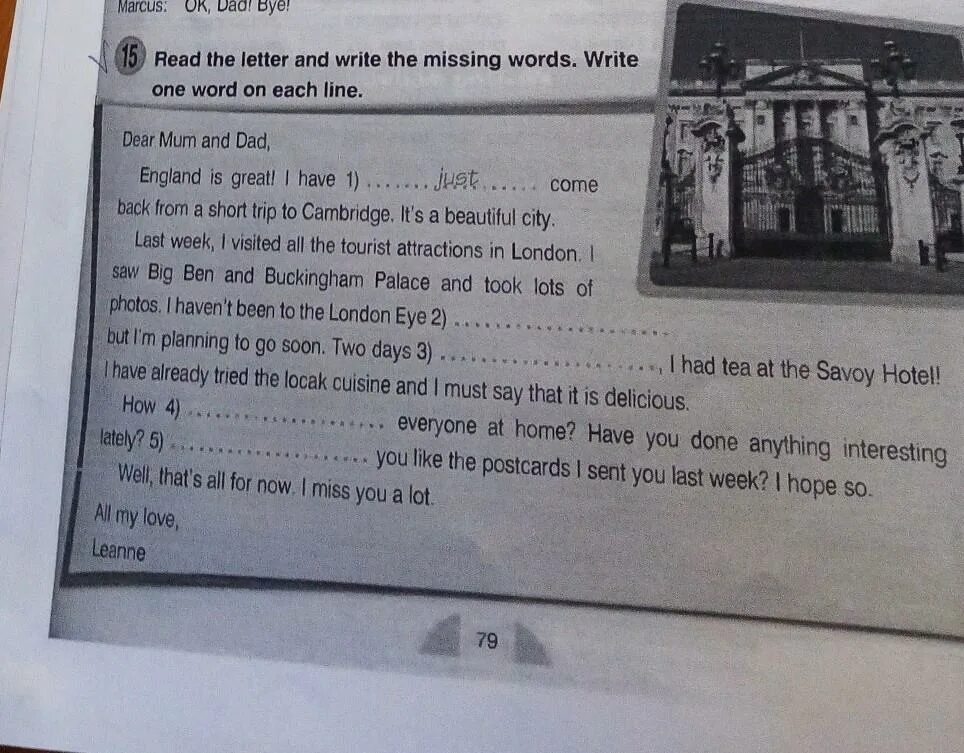 Marcus: OK, Dad! Bye!
15 Read the letter and write the missing words. Write
one word on each line.
Dear Mum and Dad,
England is great! I have 1) ....... just ...... come
back from a short trip to Cambridge. It's a beautiful city.
Last week, I visited all the tourist attractions in London. I
saw Big Ben and Buckingham Palace and took lots of
photos. I haven't been to the London Eye 2) ......................
but I'm planning to go soon. Two days 3) ......................, I had tea at the Savoy Hotel!
I have already tried the locak cuisine and I must say that it is delicious.
How 4) ...................... everyone at home? Have you done anything interesting
lately? 5) ...................... you like the postcards I sent you last week? I hope so.
Well, that's all for now. I miss you a lot.
All my love,
Leanne
79